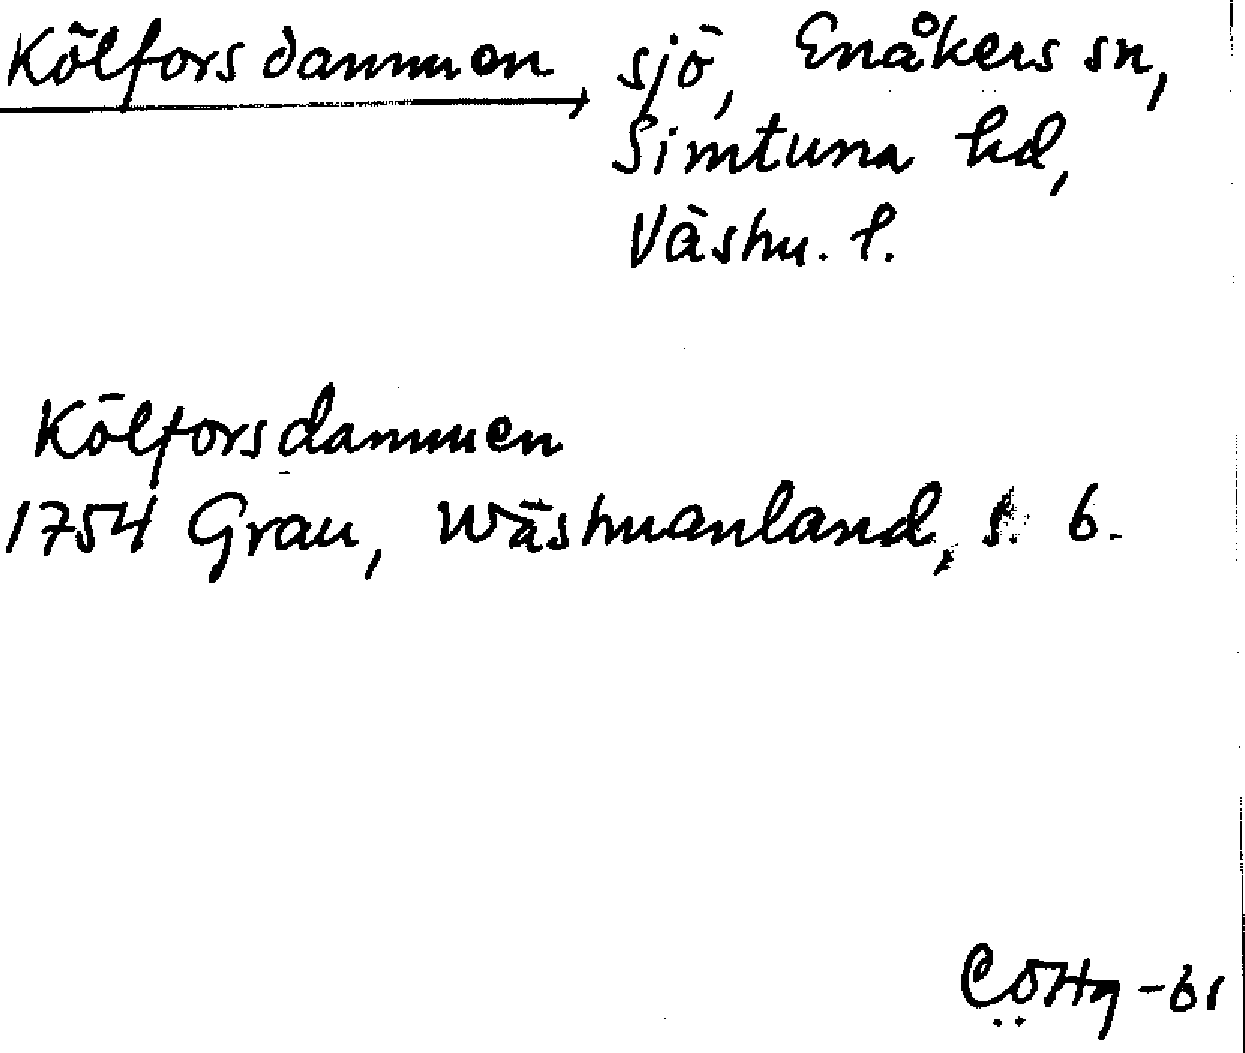 Kölforsdammen, sjö, Enåkers sn,
Simtuna hd,
Västm. l.
Kölforsdammen
1754 Grau, Wästmanland, s. 6.
CÖHg -61